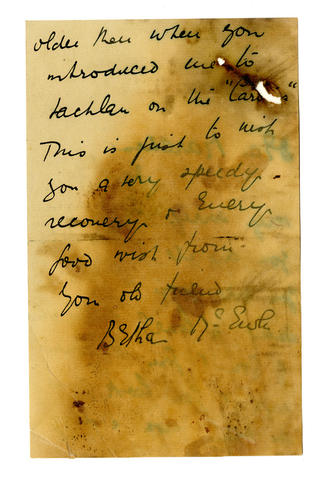 older then when you
introduced me to
Lachlan on the "Car
This is just to wish
you a very speedy
recovery & Every
good wish from
Your old friend
Mc